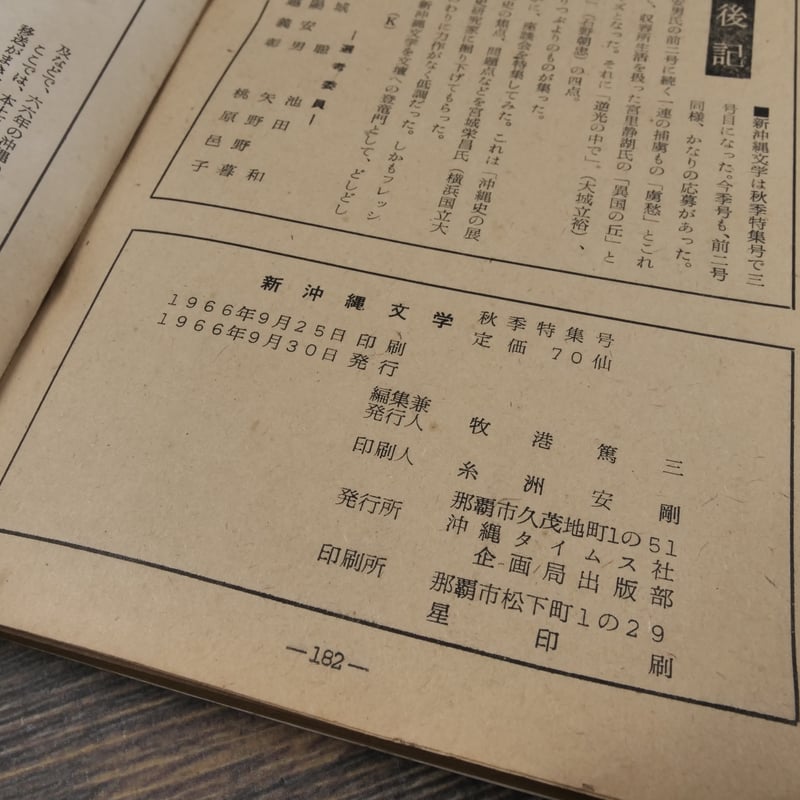 後記
■新沖縄文学は秋季特集号で三
号目になった。今季号も、前二号
同様、かなりの応募があった。
安男氏の前二号に続く一連の捕虜もの「虜愁」とこれ
収容所生活を扱った宮里静湖氏の「異国の丘」と
となった。それに「逆光の中で」。(大城立裕)、
(石野朝忠)の四点。
つぶよりのものが集った。
に、座談会を特集してみた。これは「沖縄史の展
史の焦点、問題点などを宮城栄昌氏(横浜国立大
史研究家に掘り下げてもらった。
わりに力作がなく低調だった。しかもフレッシ
新沖縄文学を文壇への登竜門として、どしどし
(K)
―選考委員―
城
聡
安男
義彰
池田
矢野
野暮
桃原邑子
和
及などで、六六年の沖縄
ここでは、
新沖縄文学 秋季特集号
定価 70仙
1966年9月25日 印刷
1966年9月30日 発行
編集兼
発行人 牧港篤三
印刷人 糸洲安剛
発行所 那覇市久茂地町1の51
沖縄タイムス社
企画局出版部
印刷所 那覇市松下町1の29
星印刷
—182—